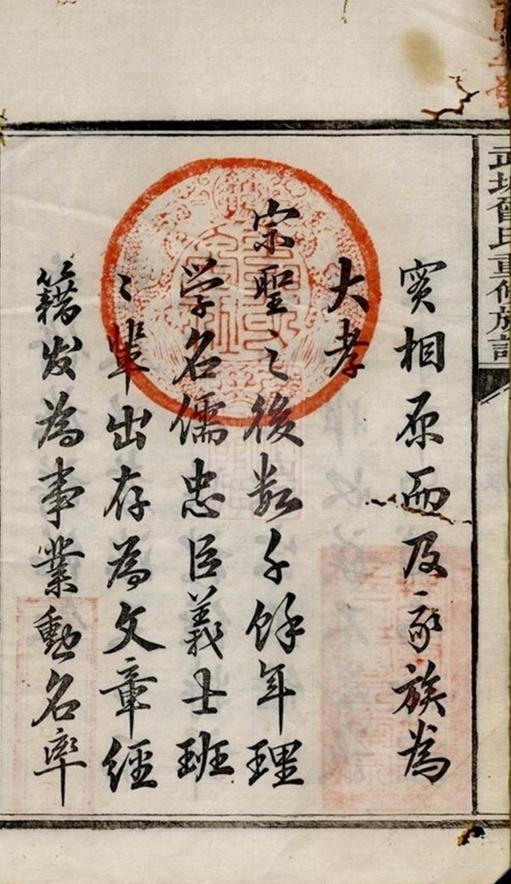 武城曾氏重修族譜
實相原而及家族為
大孝
宗聖之後數千餘年理
学名儒忠臣義士班
〻輩出存為文章經
籍发為事業勳名率